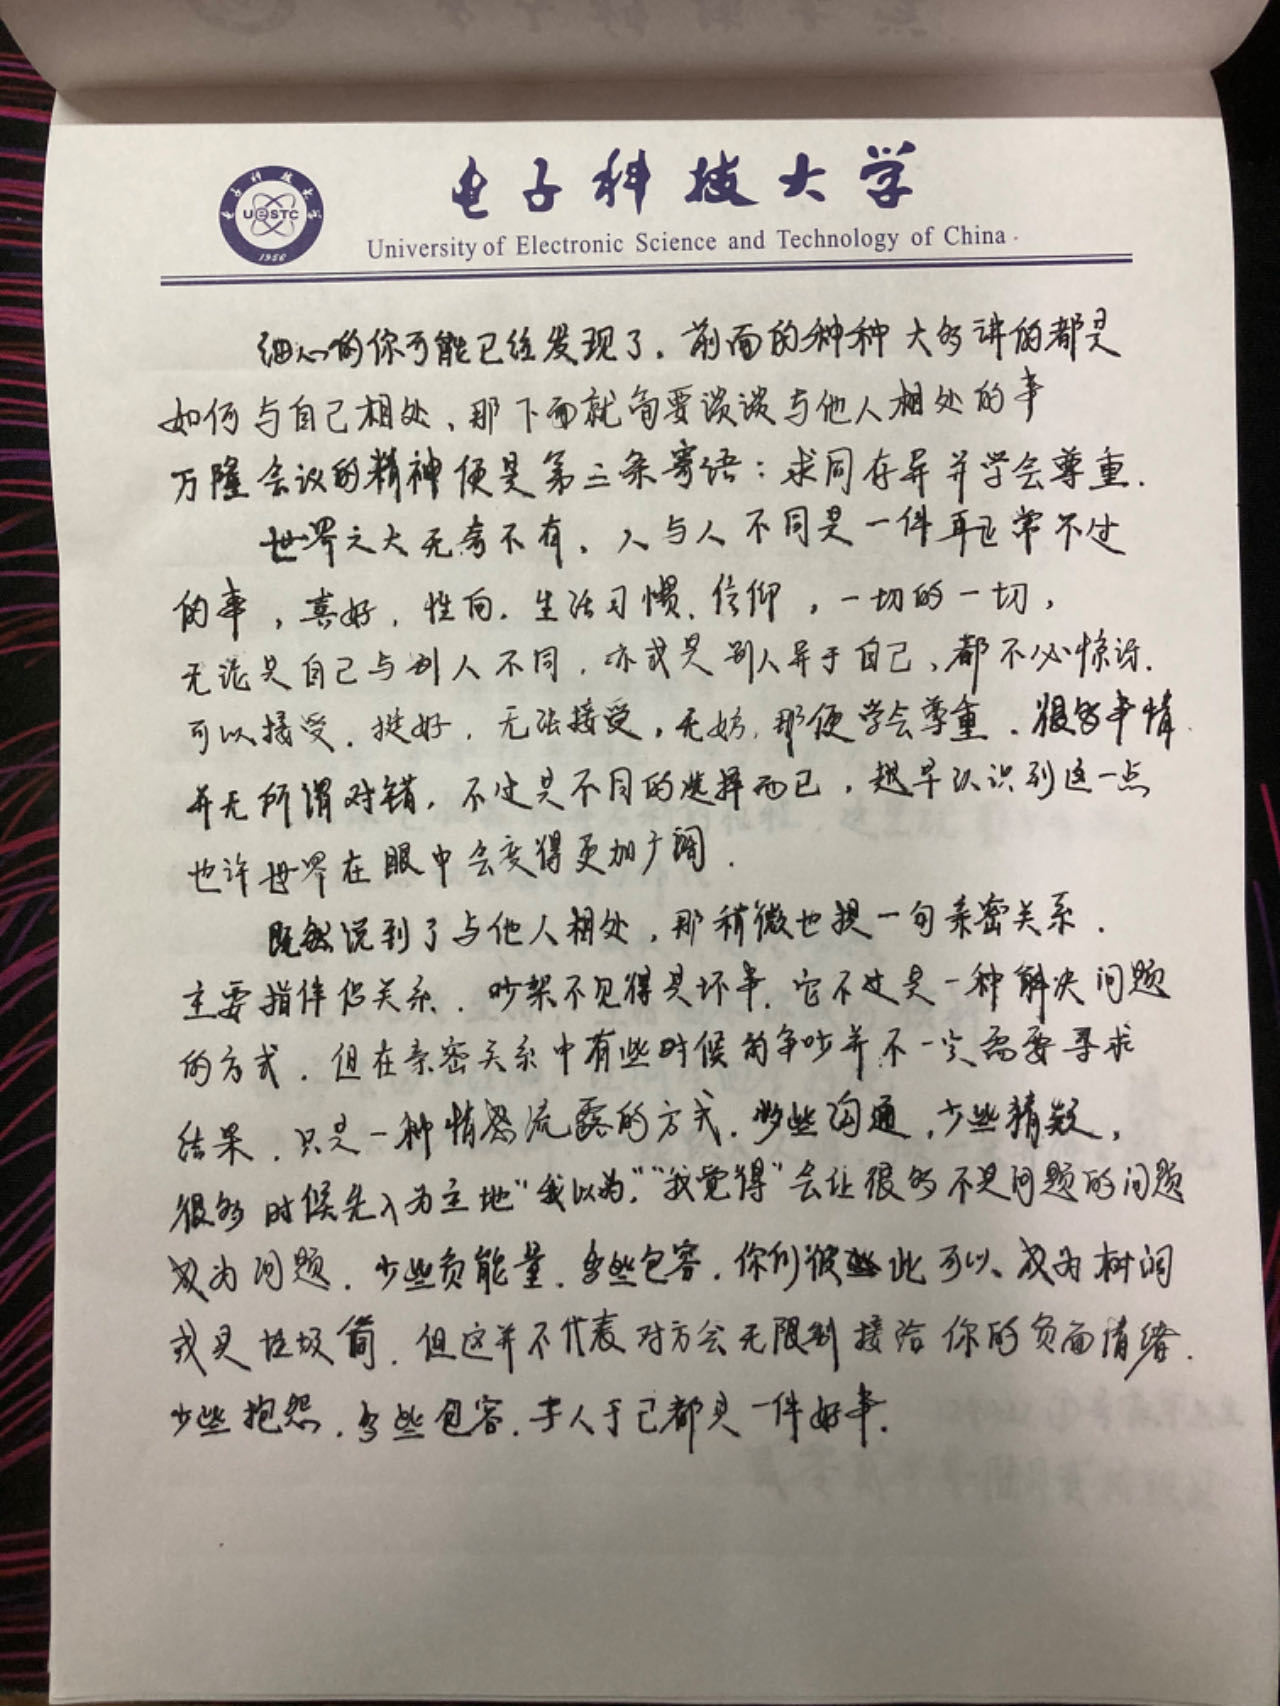 电子科技大学
University of Electronic Science and Technology of China
UESTC
1956
细心的你可能已经发现了，前面的种种大多讲的都是
如何与自己相处，那下面就简要谈谈与他人相处的事
万隆会议的精神便是第三条寄语：求同存异并学会尊重．
世界之大无奇不有，人与人不同是一件再正常不过
的事，喜好，性向，生活习惯，信仰，一切的一切，
无论是自己与别人不同，亦或是别人异于自己，都不必惊讶．
可以接受，挺好，无法接受，无妨，那便学会尊重．很多事情
并无所谓对错，不过是不同的选择而已，越早认识到这一点
也许世界在眼中会变得更加广阔．
既然说到了与他人相处，那稍微也提一句亲密关系．
主要指伴侣关系．吵架不见得是坏事，它不过是一种解决问题
的方式．但在亲密关系中有些时候的争吵并不一定需要寻求
结果．只是一种情感流露的方式．多些沟通，少些猜疑，
很多时候先入为主地“我以为”“我觉得”会让很多不是问题的问题
成为问题．少些负能量，多些包容．你们彼此可以成为树洞
或是垃圾筒．但这并不代表对方会无限制接给你的负面情绪．
少些抱怨，多些包容．于人于己都是一件好事．